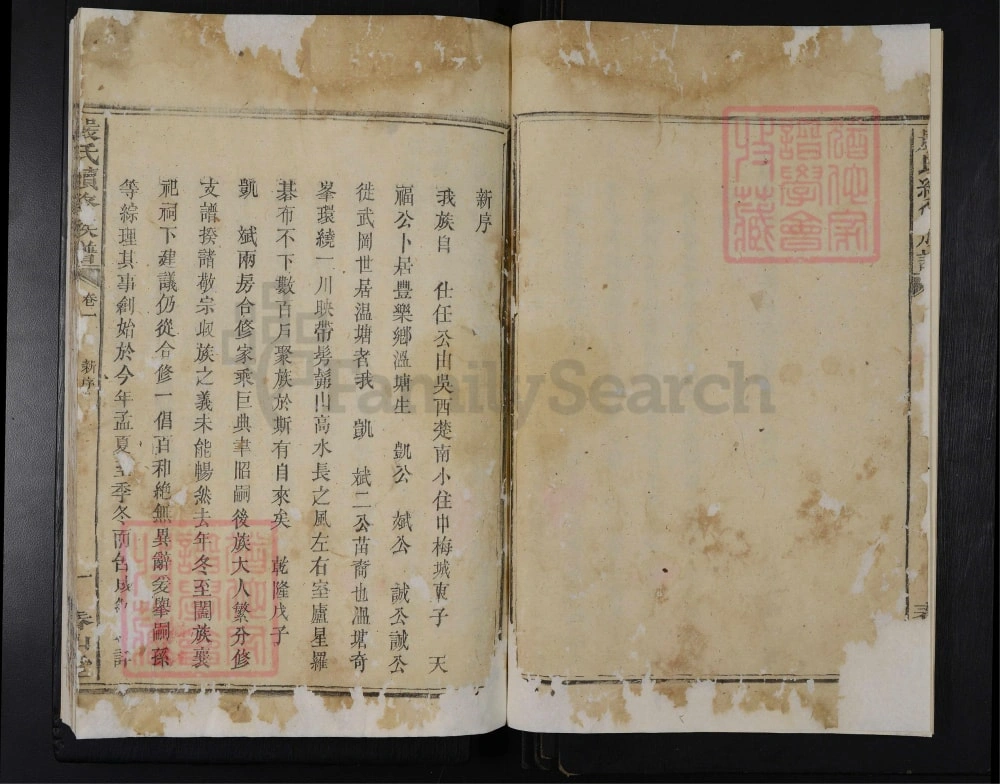 新序
我族自 仕任公由吳西楚南小住中梅城東子 天
福公卜居豐樂鄉溫塘生 凱公 斌公 誠公誠公
徙武岡世居溫塘者我 凱 斌二公苗裔也溫塘奇
峯環繞一川映帶髣髴山高水長之風左右室廬星羅
碁布不下數百戶聚族於斯有自來矣 乾隆戊子
凱 斌兩房合修家乘巨典聿昭嗣後族大人繁分修
支譜揆諸敬宗收族之義未能暢然去年冬至闔族襄
祀祠下建議仍從合修一倡百和絶無異辭爰舉嗣孫
等綜理其事創始於今年孟夏至季冬而告成
氏續修族譜
卷一
新序
一
FamilySearch
譜學會